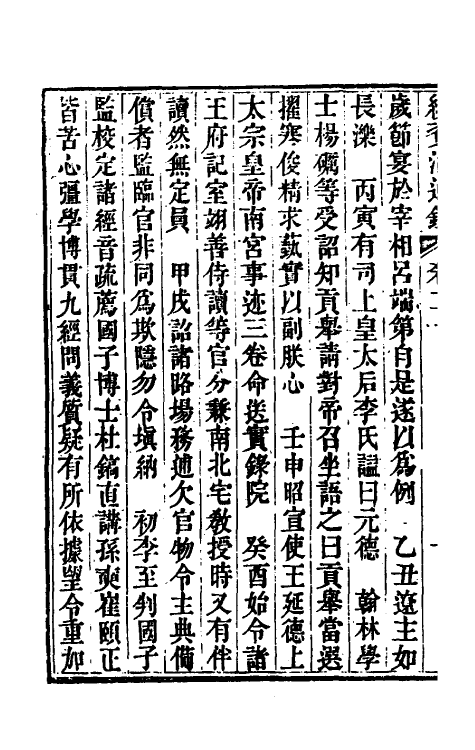 歲節宴於宰相呂端第自是遂以爲例　乙丑遼主如
長濼　丙寅有司上皇太后李氏諡曰元德　翰林學
士楊礪等受詔知貢舉請對帝召坐語之曰貢舉當選
擢寒俊精求藝實以副朕心　壬申昭宣使王延德上
太宗皇帝南宮事迹三卷命送實錄院　癸酉始令諸
王府記室翊善侍讀等官分兼南北宅教授時又有伴
讀然無定員　甲戌詔諸路場務逋欠官物令主典備
償者監臨官非同爲欺隱勿令塡納　初李至判國子
監校定諸經音疏薦國子博士杜鎬直講孫奭崔頤正
皆苦心彊學博貫九經問義質疑有所依據望令重加